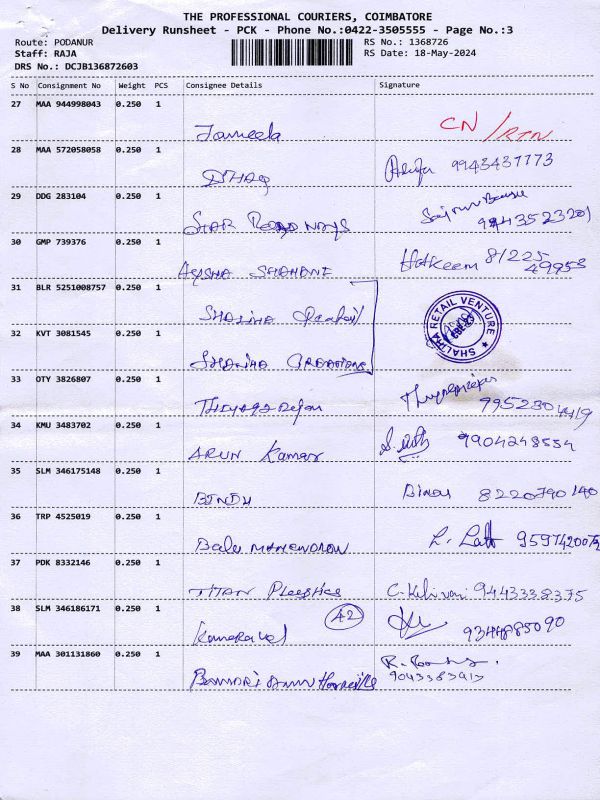 THE PROFESSIONAL COURIERS, COIMBATORE
Delivery Runsheet - PCK - Phone No.:0422-3505555 - Page No.:3
Route: PODANUR RS No.: 1368726
Staff: RAJA RS Date: 18-May-2024
DRS No.: DCJB136872603
S No Consignment No Weight PCS Consignee Details Signature
27 MAA 944998043 0.250 1 Jameela CN / RTN
28 MAA 572058058 0.250 1 9943437773
29 DDG 283104 0.250 1 STAR 9443523201
30 GMP 739376 0.250 1 AYISHA Hakeem 81225 49953
31 BLR 5251008757 0.250 1 SHALIMA
SHALIMA RETAIL VENTURE
32 KVT 3081545 0.250 1 SHALIMA CREATIONS
33 OTY 3826807 0.250 1 9952304419
34 KMU 3483702 0.250 1 ARUN Kumar 9904248554
35 SLM 346175148 0.250 1 BINDU Bindu 8220790140
36 TRP 4525019 0.250 1 Balu
37 PDK 8332146 0.250 1 TITAN 9443338375
38 SLM 346186171 0.250 1 42 9344885090
39 MAA 301131860 0.250 1